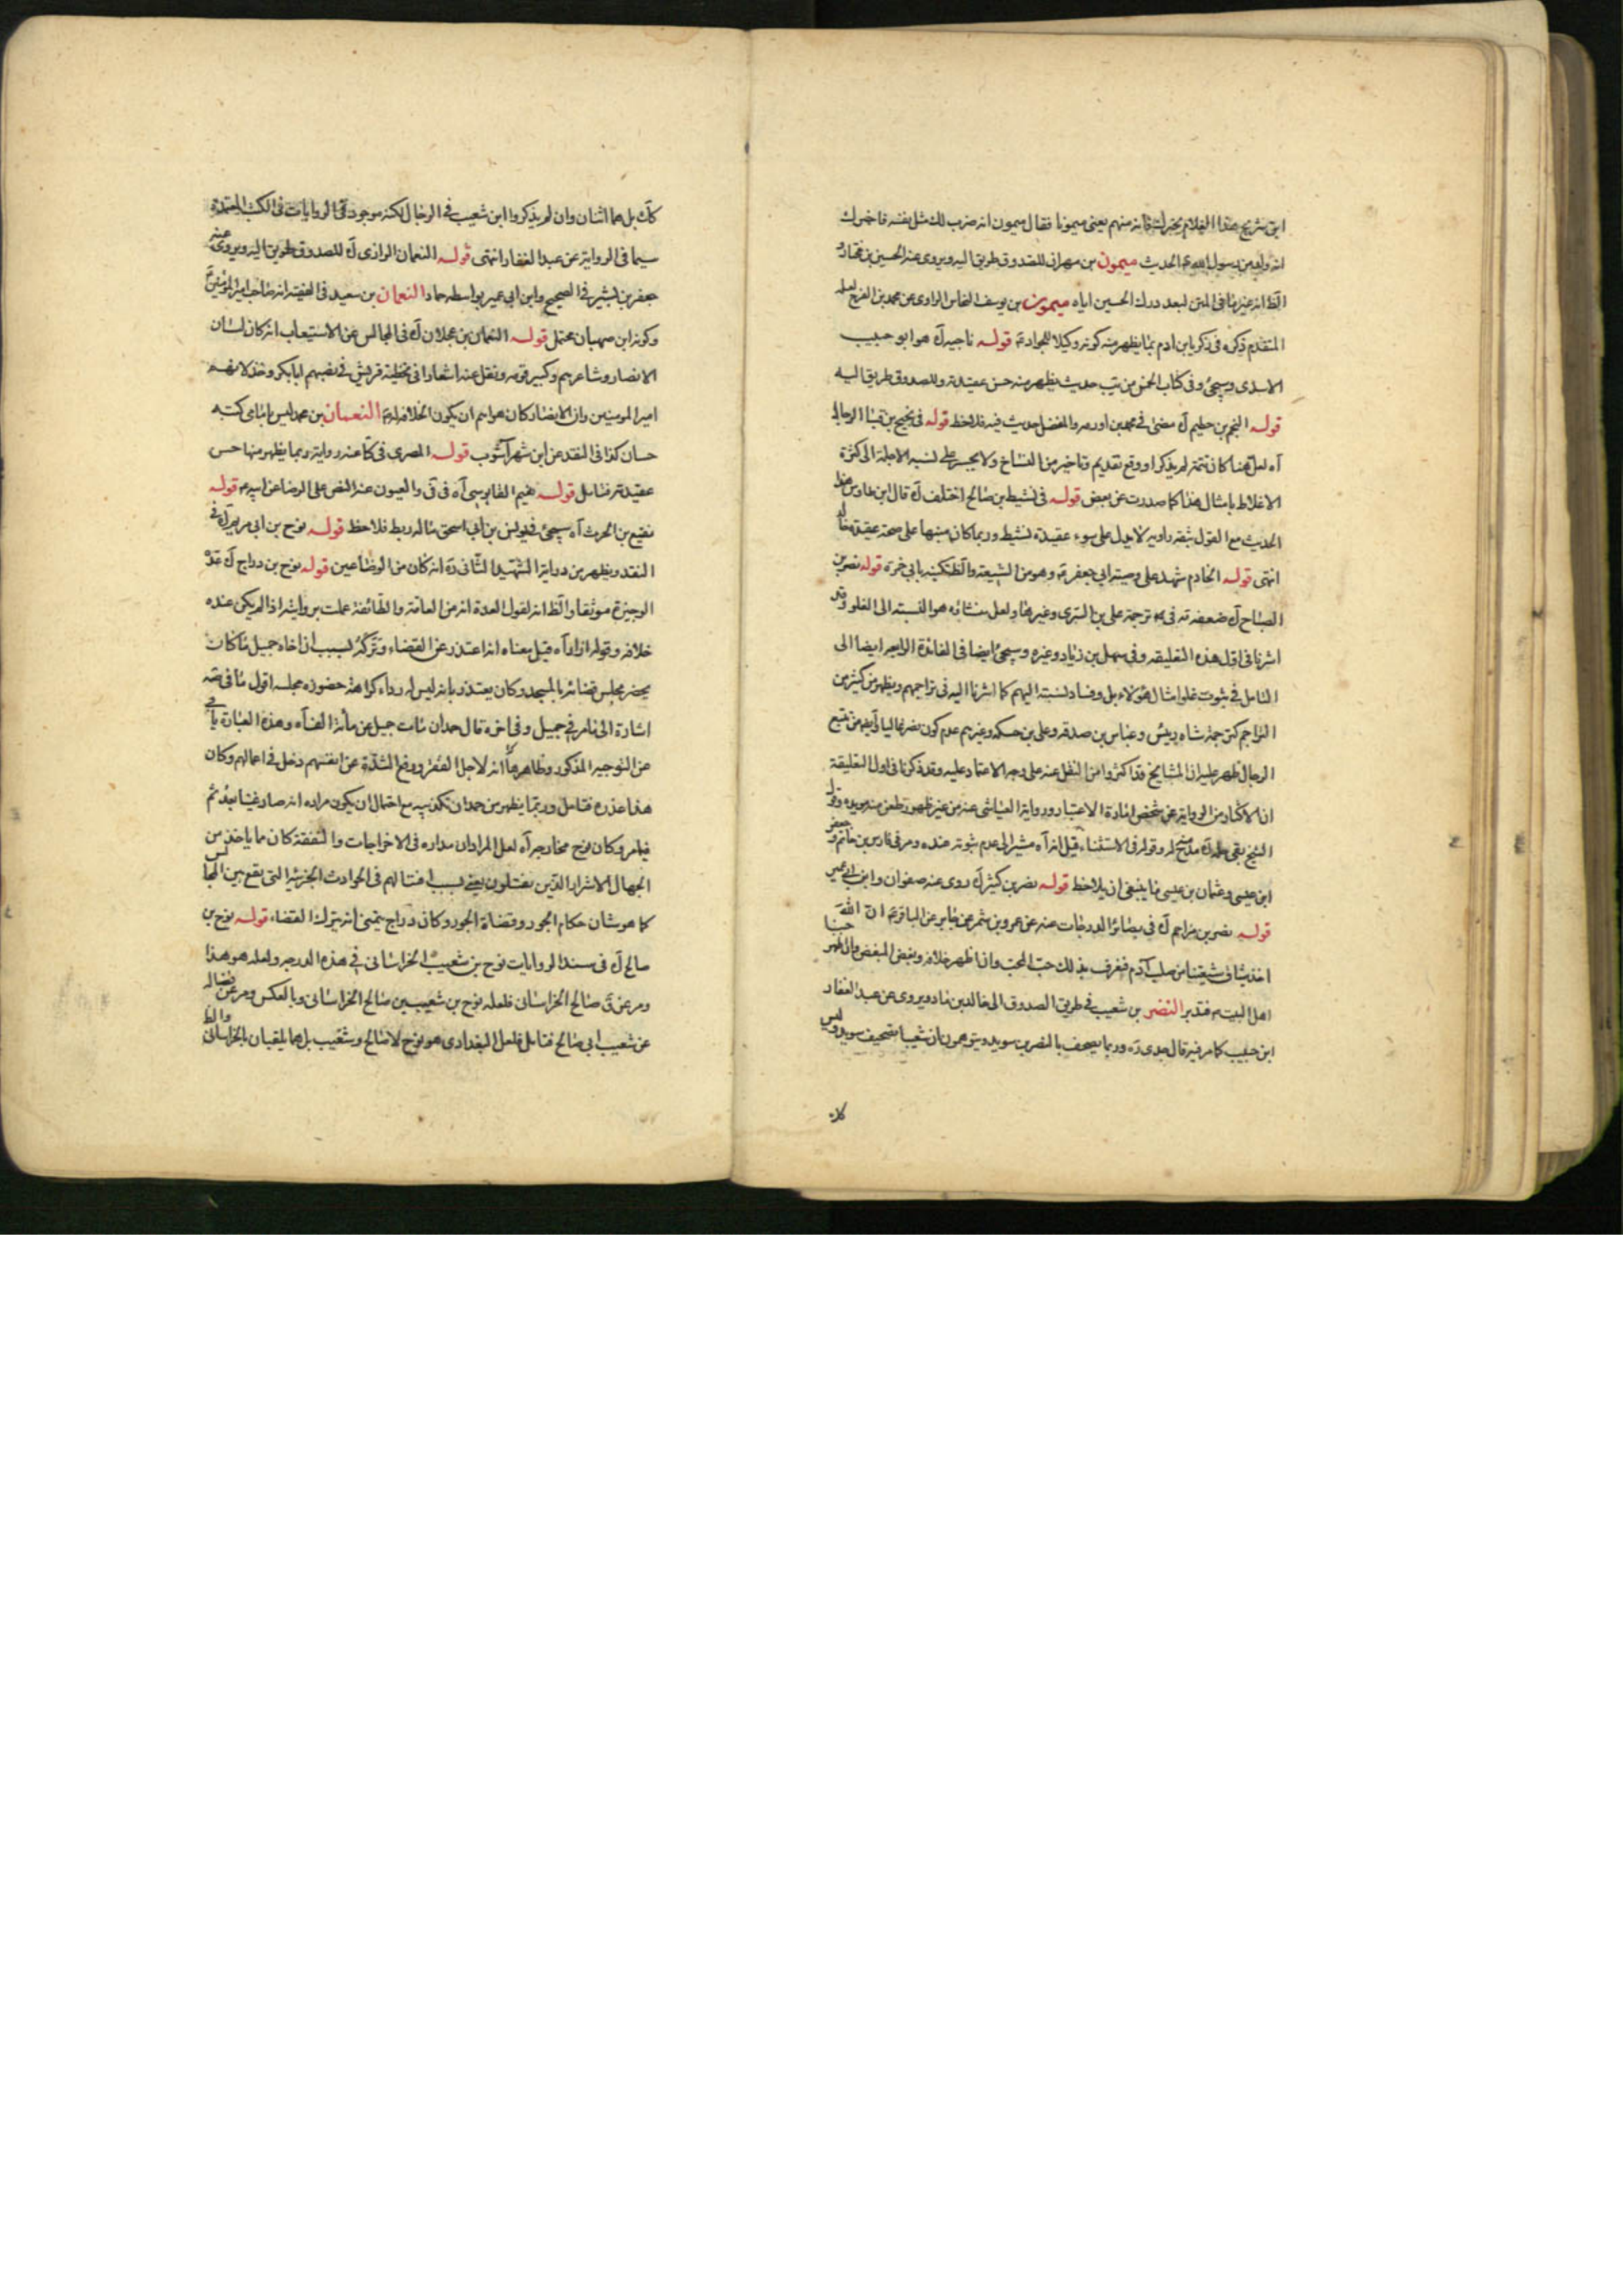 ابن شريح هذا الغلام يخبرك فانه منهم يعنى ميمونا فقال ميمون انه ضرب لك مثل نفسه فاخبرك
انه ولد من رسول الله الحديث ميمون بن مهران للصدوق طريق اليه ويروى عنه الحسين بن مختار و
الظ انه غير ما فى المتن لبعد درك الحسين اياه ميمون بن يوسف النخاس الراوى عن محمد بن الفرج لعله
المتقدم ذكره فى زكريا بن ادم مما يظهر منه كونه وكيلا للجواد ع قوله ناجيه آه هو ابو حبيب
الاسدى وسيجئ وفى كتاب الحسن من يب حديث يظهر منه حسن عقيدته وللصدوق طريق اليه
قوله النجم بن حطيم آه مضى فى محمد بن اورمه والمفضل حديث فيه فلاحظ قوله فى نجيح بن قبا الرجال
آه لعل هنا كان تتمة لم يذكر او وقع تقديم وتاخير من النساخ ولا يجسر على نسبه الاجلة الى كثرة
الاغلاط بامثال هذا كما صدرت عن بعض قوله فى نشيط بن صالح اختلف آه قال ابن طاوس هذا
الحديث مع القول بثقه راويه لا يدل على سوء عقيدة نشيط وربما كان منبها على صحة عقيدة خالد
انتهى قوله الخادم شهد على وصيته ابى جعفر ع وهو من الشيعة والظ تكنيه بابى حمزة قوله نصر بن
الصباح آه ضعفه فى ترجمة على بن السرى وغيرها ولعل منشاؤه هو النسبه الى الغلو وقد
اشرنا فى اول هذه التعليقه وفى سهل بن زياد وغيره وسيجئ ايضا فى الفائدة الرابعه ايضا الى
التامل فى ثبوت غلو امثال هؤلاء بل وفساد نسبته اليهم كما اشرنا اليه فى تراجمهم ويظهر من كثير من
التراجم كترجمة شاه رئيس وعباس بن صدقه وعلى بن حسكه وغيرهم عدم كون نصر غاليا وايضا من تتبع
الرجال ظهر عليه ان المشايخ قد اكثروا من النقل عنه على وجه الاعتماد عليه وقد ذكرنا فى اول التعليقة
ان الاكثار من الرواية عن شخص امارة الاعتبار ورواية العياشى عنه من غير ظهور طعن منه يؤيده وقول
الشيخ لقى جلة آه مدح له وقوله فى الاستثناء قيل انه آه مشيرا الى عدم ثبوته عنده ومر فى فارس بن حاتم وجعفر
ابن عيسى وعثمان بن عيسى ما ينبغى ان يلاحظ قوله نصر بن كثير آه روى عنه صفوان وابن ابى عمير
قوله نصر بن مزاحم آه فى بصائر الدرجات عنه عن عمرو بن شمر عن جابر عن الباقر ع ان الله
اخذ ميثاق شيعتنا من صلب آدم فنعرف بذلك حب المحب وان اظهر خلافه وبغض المبغض وان اظهر حبنا
اهل البيت ع فتدبر النضر بن شعيب فى طريق الصدوق الى خالد بن ماد ويروى عن عبد الغفار
ابن حبيب كما مر فيه قال جدى ره وربما يصحف بالنضر بن سويد ويتوهمون ان شعيبا تصحيف سويد وليس
كان
كآه بل هما اثنان وان لم يذكروا ابن شعيب فى الرجال لكنه موجود فى الروايات فى الكتب المعتمدة
سيما فى الرواية عن عبد الغفار انتهى قوله النعمان الرازى آه للصدوق طريق اليه ويروى عنه
جعفر بن بشير فى الصحيح وابن ابى عمير بواسطه حماد النعمان بن سعيد فى الفقيه انه صاحب امير المؤمنين ع
وكونه ابن صهبان محتمل قوله النعمان بن عجلان آه فى المجالس عن الاستيعاب انه كان لسان
الانصار وشاعرهم وكبير قومه ونقل عنه اشعارا فى تخطئة قريش فى نصبهم ابابكر وخذلانهم
امير المومنين وان الانصار كان هواهم ان يكون الخلافه له ع النعمان بن محمد ليس بامامى كتبه
حسان كذا فى النقد عن ابن شهر آشوب قوله المصرى فى كا عنه رواية ربما يظهر منها حسن
عقيدته فتامل قوله نعيم القابوسى آه فى فى والعيون عنه النص على الرضا عن ابيه ع قوله
نفيع بن الحرث آه سيجئ فى يونس بن ابى اسحق ماله ربط فلاحظ قوله نوح بن ابى مريم آه فى
النقد ويظهر من دراية الشهيد الثانى ره انه كان من الوضاعين قوله نوح بن دراج آه عده
الوجيزة موثقا والظ انه لقول العدة انه من العامة والطائفة عملت بروايته اذا لم يكن عنده
خلافه وقوله انا اذا آه قيل معناه انه اعتذر عن القضاء وتركه بسبب ان اخاه جميل ما كان
يحضر مجلس قضائه بالمسجد وكان يعتذر بانه ليس له رداء كراهة حضوره مجلسه اقول ما فى قصه
اشارة الى ما مر فى جميل وفى اخره قال حمدان مات جميل عن مائة الف آه وهذه العبارة يابى
عن التوجيه المذكور وظاهرها انه لاجل الفقر ورفع الشدة عن انفسهم دخل فى اعمالهم وكان
هذا عذره فتامل وربما يظهر من حمدان تكذيبه مع احتمال ان يكون مراده انه صار غنيا بعد ثم
فيما مر وكان نوح مخارجه آه لعل المراد ان مداره فى الاخراجات والنفقة كان ما ياخذ من
الجهال الاشرار الذين يقتتلون يعنى بسبب اقتتالهم فى الحوادث الجزئية التى يقع بين الجهال
كما هو شان حكام الجور وقضاة الجور وكان دراج يتمنى انه يترك القضاء قوله نوح بن
صالح آه فى سند الروايات نوح بن شعيب الخراسانى فى هذه الدرجه ولعله هو هذا
ومر عن فى صالح الخراسانى فلعله نوح بن شعيب بن صالح الخراسانى وبالعكس ومر عن فضاله
عن شعيب ابى صالح فتامل فلعل البغدادى هو نوح لا صالح وشعيب بل هما يلقبان بالخراسانى والظ